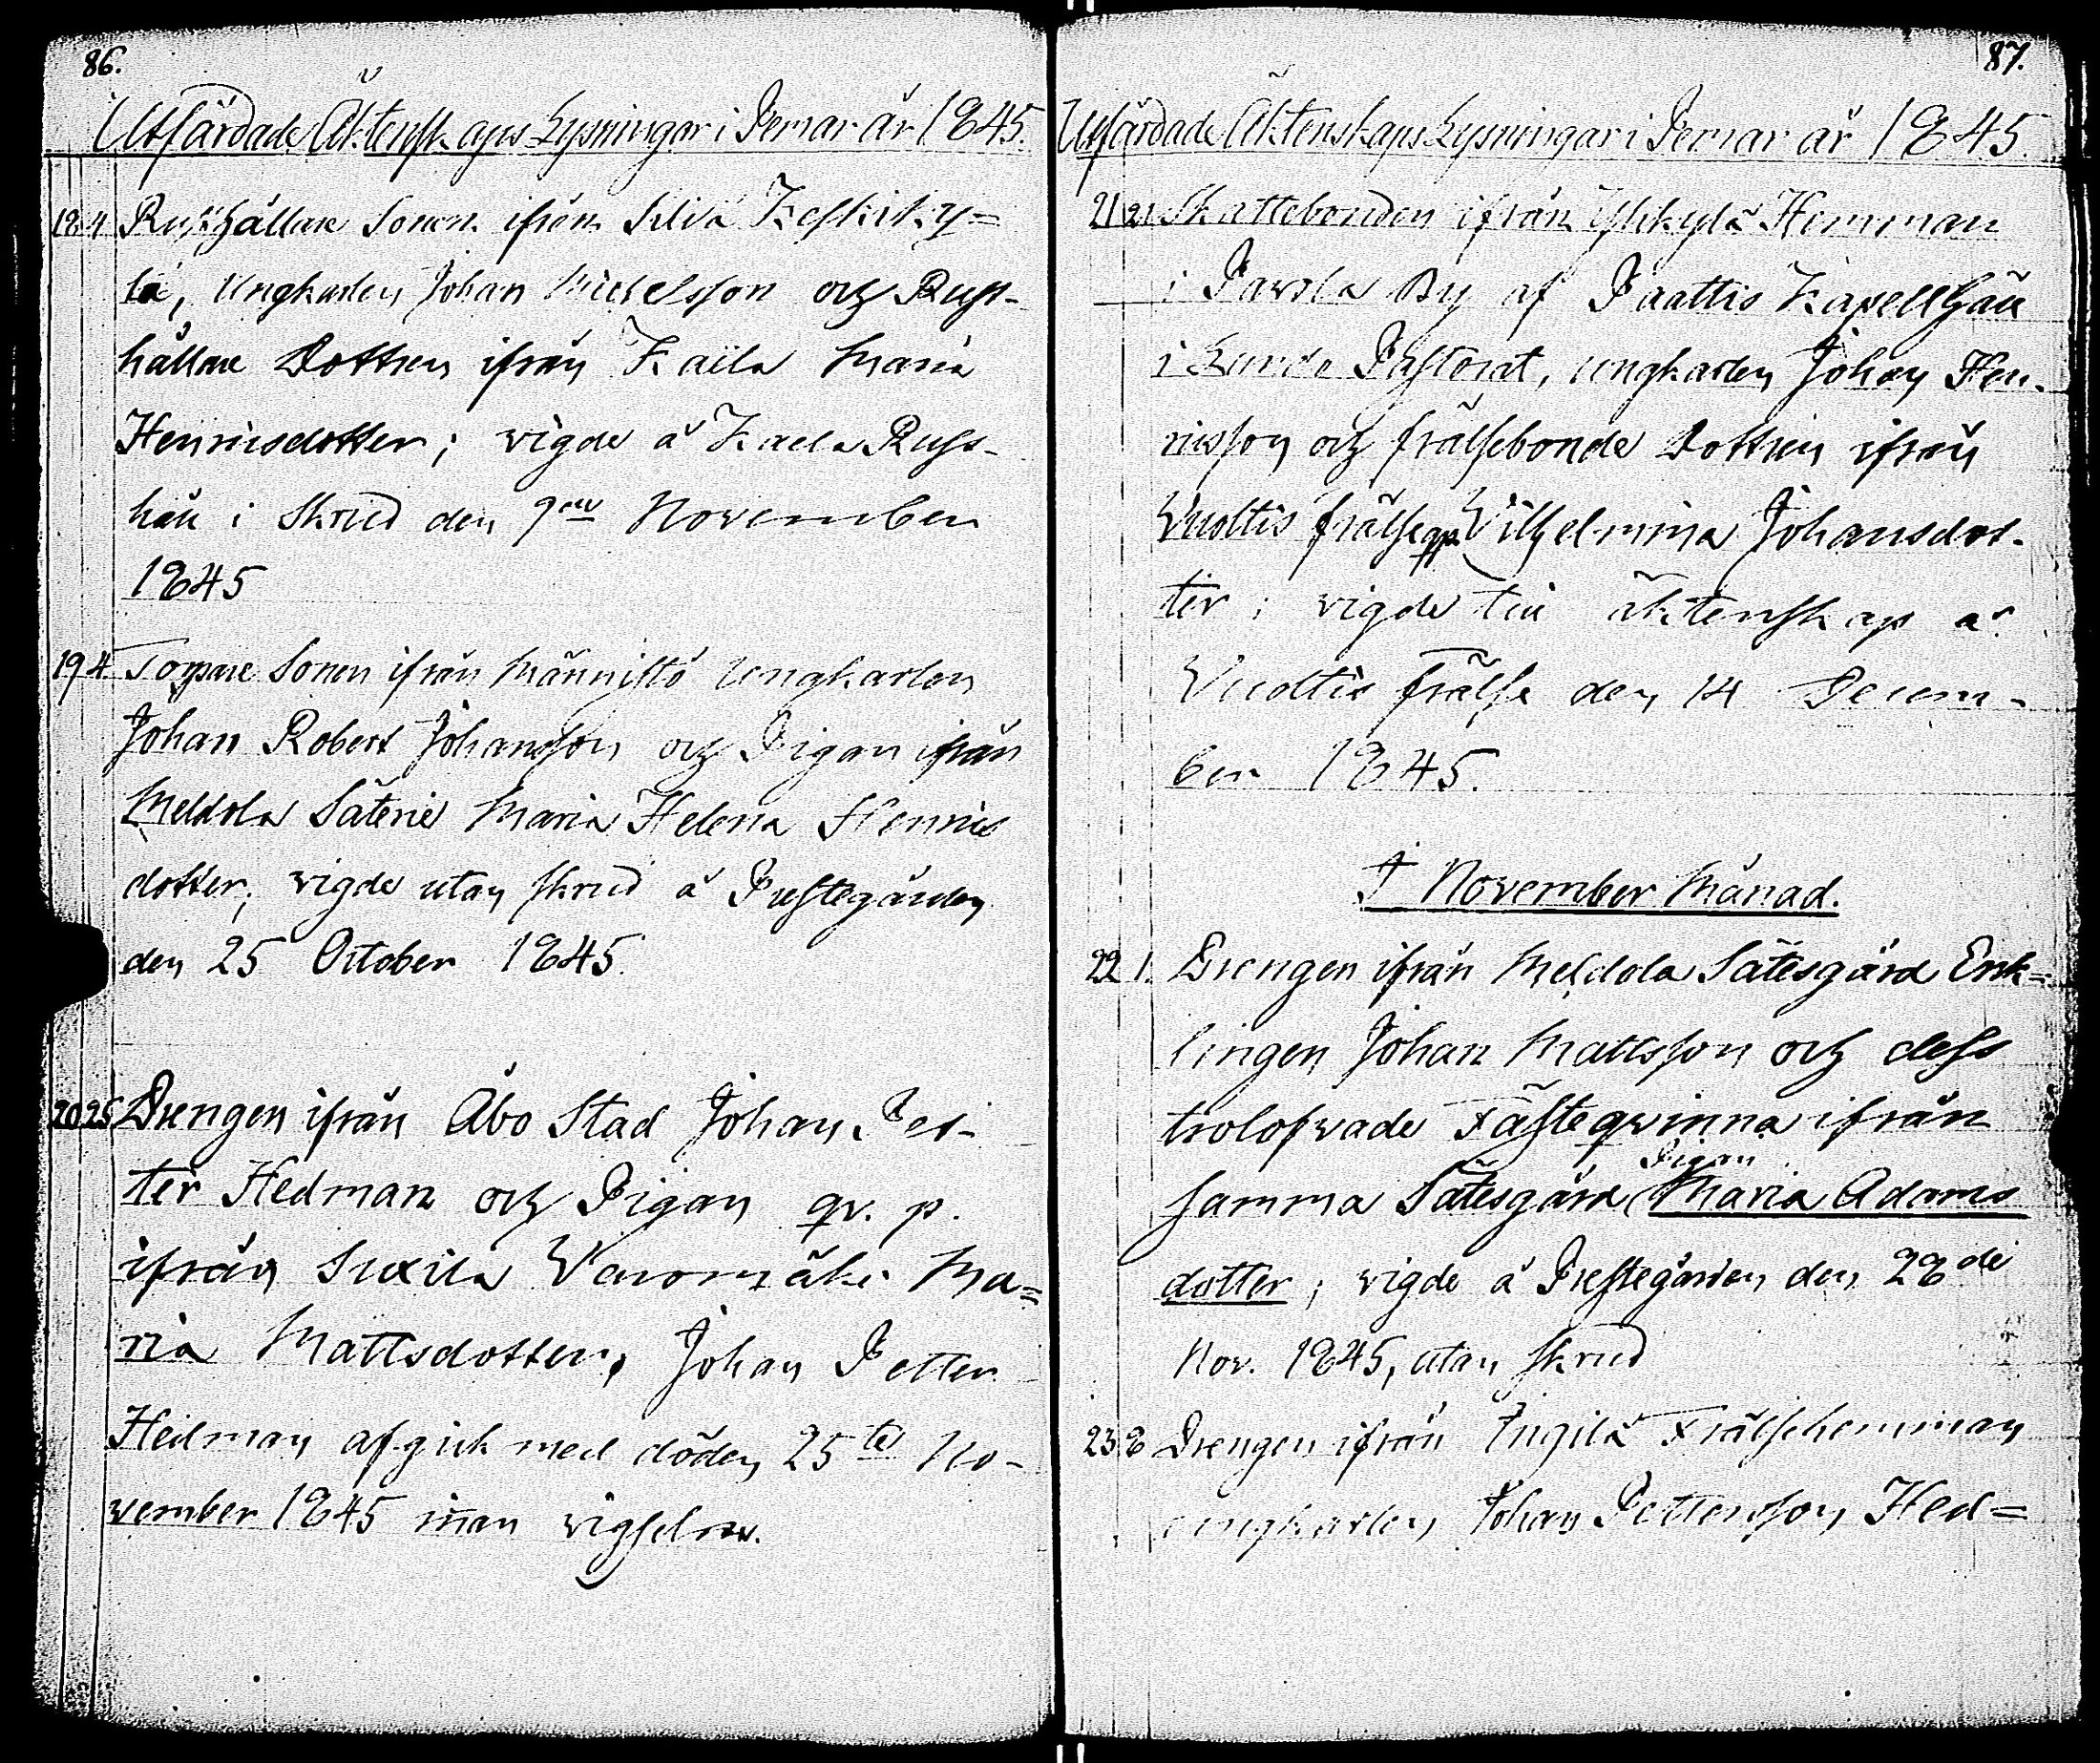 86.
Utfärdade Äktenskaps Lysningar i Pemar år 1845.
18. 4. Rusthållare Sonen ifrån Silvä Keskiky=
lä, Ungkarlen Johan Michelsson och Rust-
hållare Dottren ifrån Kaila Maria
Henricsdotter; vigde å Kaela Rust-
håll i Skrud den 9de November
1845
19. 4. Torpare Sonen ifrån Männistö Ungkarlen
Johan Robert Johansson och Pigan ifrån
Meldola Säterie Maria Helena Henrics
dotter; vigde utan skrud å Prestegården
den 25 October 1845.
20. 25. Drengen ifrån Åbo Stad Johan Pet-
ter Hedman och Pigan qv. p.
ifrån Vanomäki Ma=
ria Mattsdotter, Johan Petter
Hedman afgick med döden 25te No-
vember 1845 innan vigseln.
87.
Utfärdade Äktenskaps Lysningar i Pemar år 1845.
21. 21. Skattebonden ifrån Yskylä Hemman
i Pavola By af Paattis Kapellgäll
i Lundo Pastorat, ungkarlen Johan Hen-
ricsson och frälsebonde Dottren ifrån
Vuoltis frälse qp. Vilhelmina Johansdot-
ter; vigde till äktenskap å
Vuoltis frälse den 14 Decem-
ber 1845.
I November Månad.
22. 1. Drengen ifrån Meldola Sätesgård Enk=
lingen Johan Mattsson och dess
trolofvade Fästeqvinna ifrån
Pigan
samma Sätesgård Maria Adams
dotter; vigde å Prestegården den 28de
Nov. 1845, utan skrud
23. 8 Drengen ifrån Ingilä Frälsehemman
ungkarlen Johan Pettersson Hed=